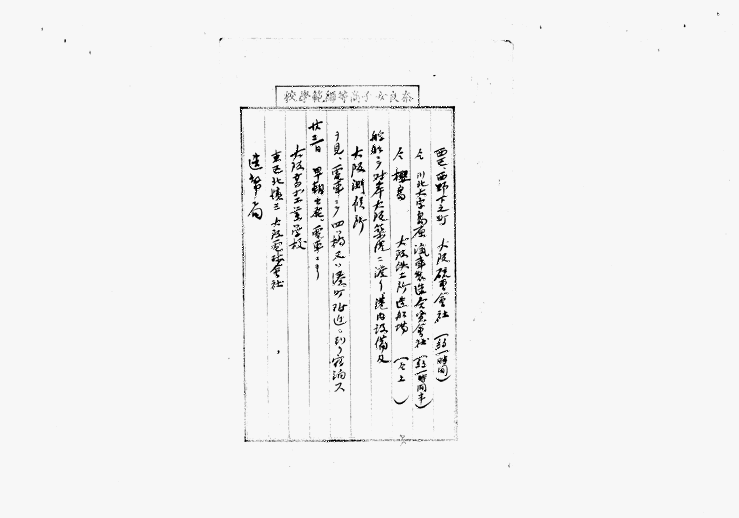 奈良女子高等師範學校
西区西野下之町 大阪硫曹會社 (約一時間)
仝 川北大字島屋 汽車製造合資會社 (約一時間半)
仝 櫻島 大阪鉄工所造船場 (仝上)
船ニテ対岸大阪築港ニ渡リ港内設備及
大阪測候所
ヲ見、電車ニテ四橋又ハ湊町附近ニ到リ宿泊ス
廿三日 早朝出発電車ニヨリ
大阪高等工業学校
北區北 大阪電球會社
造幣局